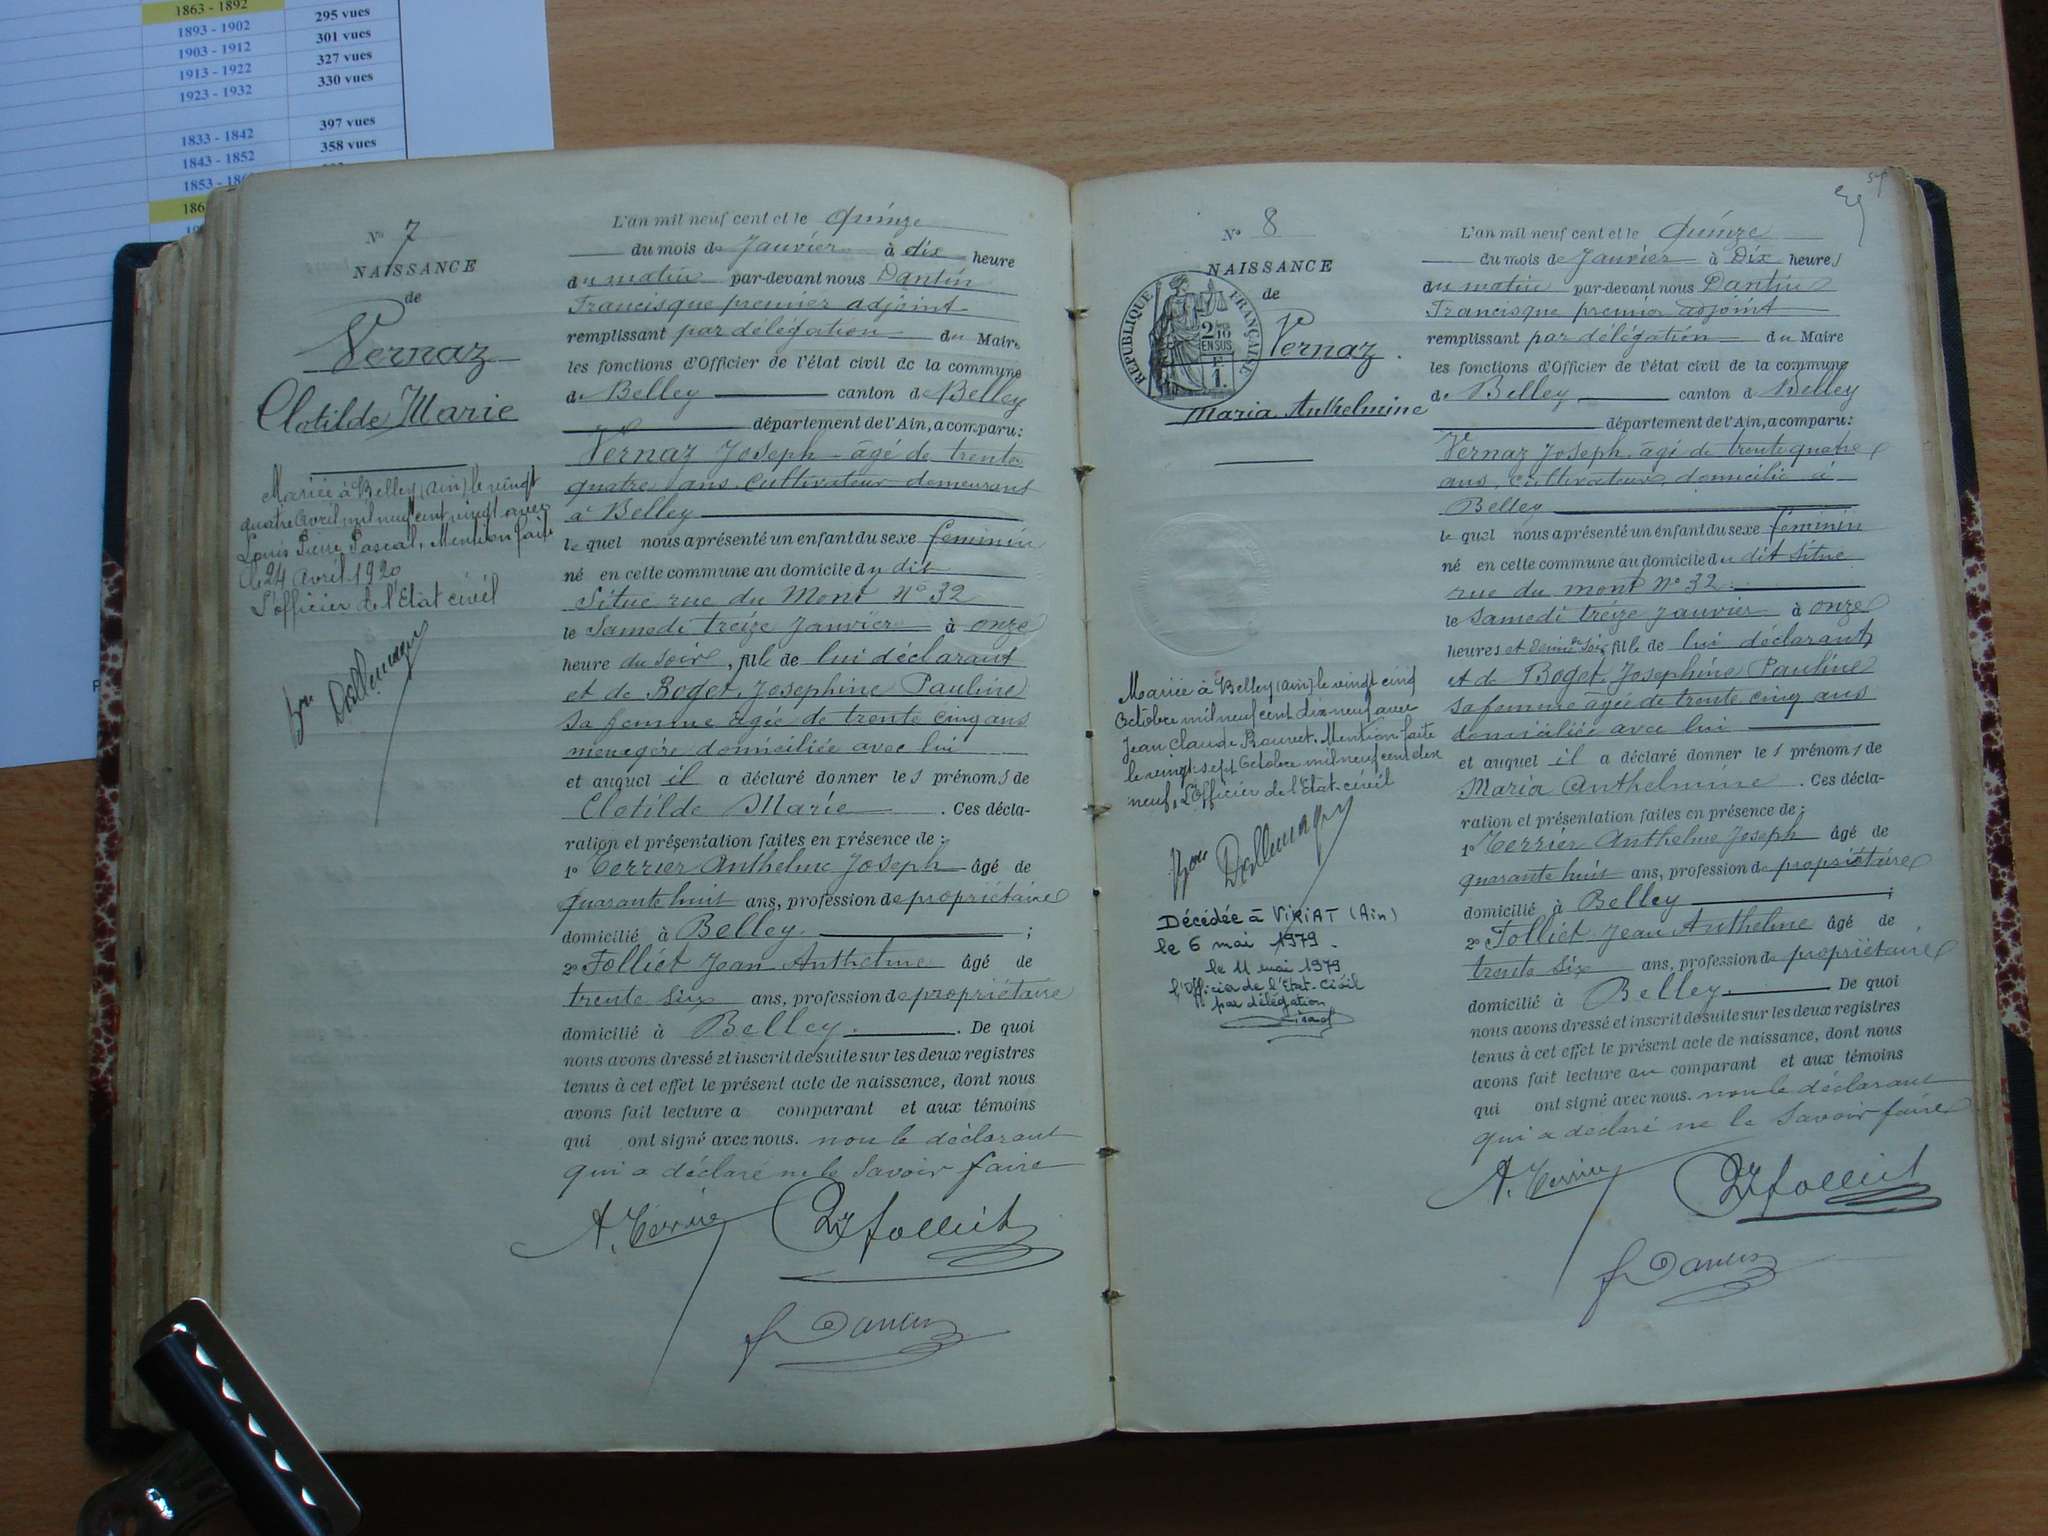 1863 - 1892
1893 - 1902 295 vues
1903 - 1912 301 vues
1913 - 1922 327 vues
1923 - 1932 330 vues
1833 - 1842 397 vues
1843 - 1852 358 vues
N° 7
NAISSANCE
de
Vernaz
Clotilde Marie
Mariée à Belley (Ain) le vingt
quatre avril mil neuf cent vingt avec
Louis Pierre Pascal. Mention faite
le 24 Avril 1920
L'officier de l'Etat civil
Dallemagne
L'an mil neuf cent et le quinze
du mois de Janvier à dix heure
du matin par-devant nous Dantin
Francisque premier adjoint
remplissant par délégation du Maire
les fonctions d'Officier de l'état civil de la commune
de Belley canton de Belley
département de l'Ain, a comparu:
Vernaz Joseph âgé de trente
quatre ans cultivateur demeurant
à Belley
le quel nous a présenté un enfant du sexe féminin
né en cette commune au domicile du dit
Situé rue du Mont N° 32
le Samedi treize Janvier à onze
heure du soir, fille de lui déclarant
et de Boget Josephine Pauline
sa femme agée de trente cinq ans
ménagère domiciliée avec lui
et auquel il a déclaré donner les prénoms de
Clotilde Marie. Ces décla-
ration et présentation faites en présence de:
1° Terrier Anthelme Joseph âgé de
quarante huit ans, profession de propriétaire
domicilié à Belley ;
2° Folliet Jean Anthelme âgé de
trente six ans, profession de propriétaire
domicilié à Belley. De quoi
nous avons dressé et inscrit de suite sur les deux registres
tenus à cet effet le présent acte de naissance, dont nous
avons fait lecture a comparant et aux témoins
qui ont signé avec nous. non le déclarant
qui a déclaré ne le savoir faire
A. Terrier Folliet
F Dantin
N° 8
NAISSANCE
de
Vernaz
Maria Anthelmine
REPUBLIQUE FRANÇAISE
2/10
EN SUS
1.
Mariée à Belley (Ain) le vingt cinq
Octobre mil neuf cent dix neuf avec
Jean Claude Mention faite
le vingt sept Octobre mil neuf cent dix
neuf, L'Officier de l'Etat civil
Dallemagne
Décédée à VIRIAT (Ain)
le 6 mai 1979.
le 11 mai 1979
l'Officier de l'Etat-Civil
par délégation
L'an mil neuf cent et le quinze
du mois de Janvier à Dix heures
du matin par-devant nous Dantin
Francisque premier adjoint
remplissant par délégation du Maire
les fonctions d'Officier de l'état civil de la commune
de Belley canton de Belley
département de l'Ain, a comparu:
Vernaz Joseph âgé de trente quatre
ans, cultivateur, domicilié à
Belley
le quel nous a présenté un enfant du sexe féminin
né en cette commune au domicile du dit situé
rue du mont N° 32
le samedi treize janvier à onze
heures et demie du soir, fille de lui déclarant
et de Boget Joséphine Pauline
sa femme âgée de trente cinq ans
domiciliée avec lui
et auquel il a déclaré donner les prénoms de
Maria Anthelmine. Ces décla-
ration et présentation faites en présence de:
1° Terrier Anthelme Joseph âgé de
quarante huit ans, profession de propriétaire
domicilié à Belley ;
2° Folliet Jean Anthelme âgé de
trente six ans, profession de propriétaire
domicilié à Belley. De quoi
nous avons dressé et inscrit de suite sur les deux registres
tenus à cet effet le présent acte de naissance, dont nous
avons fait lecture au comparant et aux témoins
qui ont signé avec nous. non le déclarant
qui a déclaré ne le savoir faire
A. Terrier Folliet
F Dantin